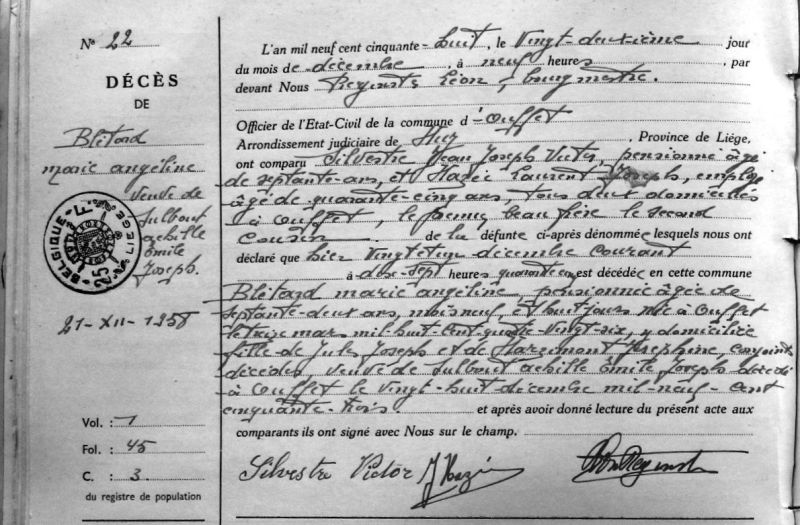 N° 22
DÉCÈS
DE
Blétard
marie angéline
veuve de
Julbout
achille
Emile
Joseph.
BELGIQUE
25 F
21-XII-1958
Vol. : 1
Fol. : 45
C. : 3
du registre de population
L'an mil neuf cent cinquante-huit, le Vingt-deuxième jour
du mois de décembre, à neuf heures, par
devant Nous Léon, bourgmestre.
Officier de l'Etat-Civil de la commune d'Ouffet
Arrondissement judiciaire de Huy, Province de Liége,
ont comparu Silvestre Jean Joseph Victor, pensionné âgé
de septante-ans, et Hazée Laurent Joseph, employé
âgé de quarante-cinq ans tous deux domiciliés
à Ouffet, le premier beau frère le second
cousin de la défunte ci-après dénommée lesquels nous ont
déclaré que hier vingt et un décembre courant
à dix-sept heures quarante est décédée en cette commune
Blétard marie angéline, pensionnée âgée de
septante-deux ans, mois neuf, et huit jours née à Ouffet
le treize mars mil huit cent quatre-vingt-six, y domiciliée
fille de Jules Joseph et de Joséphine, conjoints
décédés, veuve de Julbout achille Emile Joseph décédé
à Ouffet le vingt-huit décembre mil-neuf-cent
cinquante-trois et après avoir donné lecture du présent acte aux
comparants ils ont signé avec Nous sur le champ.
Silvestre Victor J Hazée